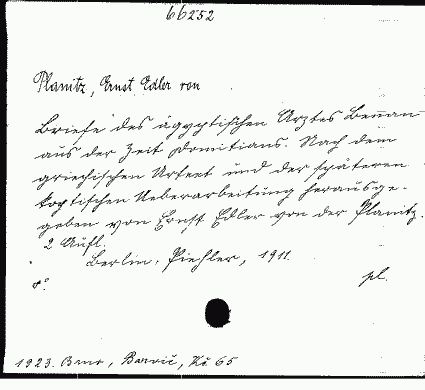 66252
Planitz, Ernst Edler von
Briefe des ägyptischen Arztes Benan
aus der Zeit Domitians. Nach dem
griechischen Urtext und der späteren
koptischen Ueberarbeitung herausge-
geben von Ernst Edler von der Planitz.
2 Aufl.
Berlin, Piehler, 1911.
8°
pl.
1923. Brno, Barvič, Kč 65